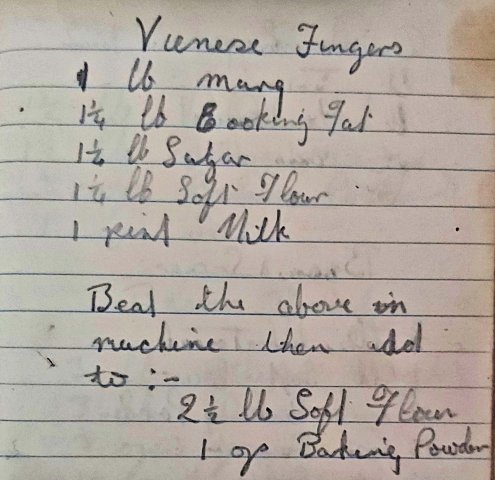 Vienese Fingers
1 lb marg
1¼ lb Cooking Fat
1¼ lb Sugar
1¼ lb Soft Flour
1 pint Milk
Beat the above in
machine then add
to :-
2½ lb Soft Flour
1 oz Baking Powder